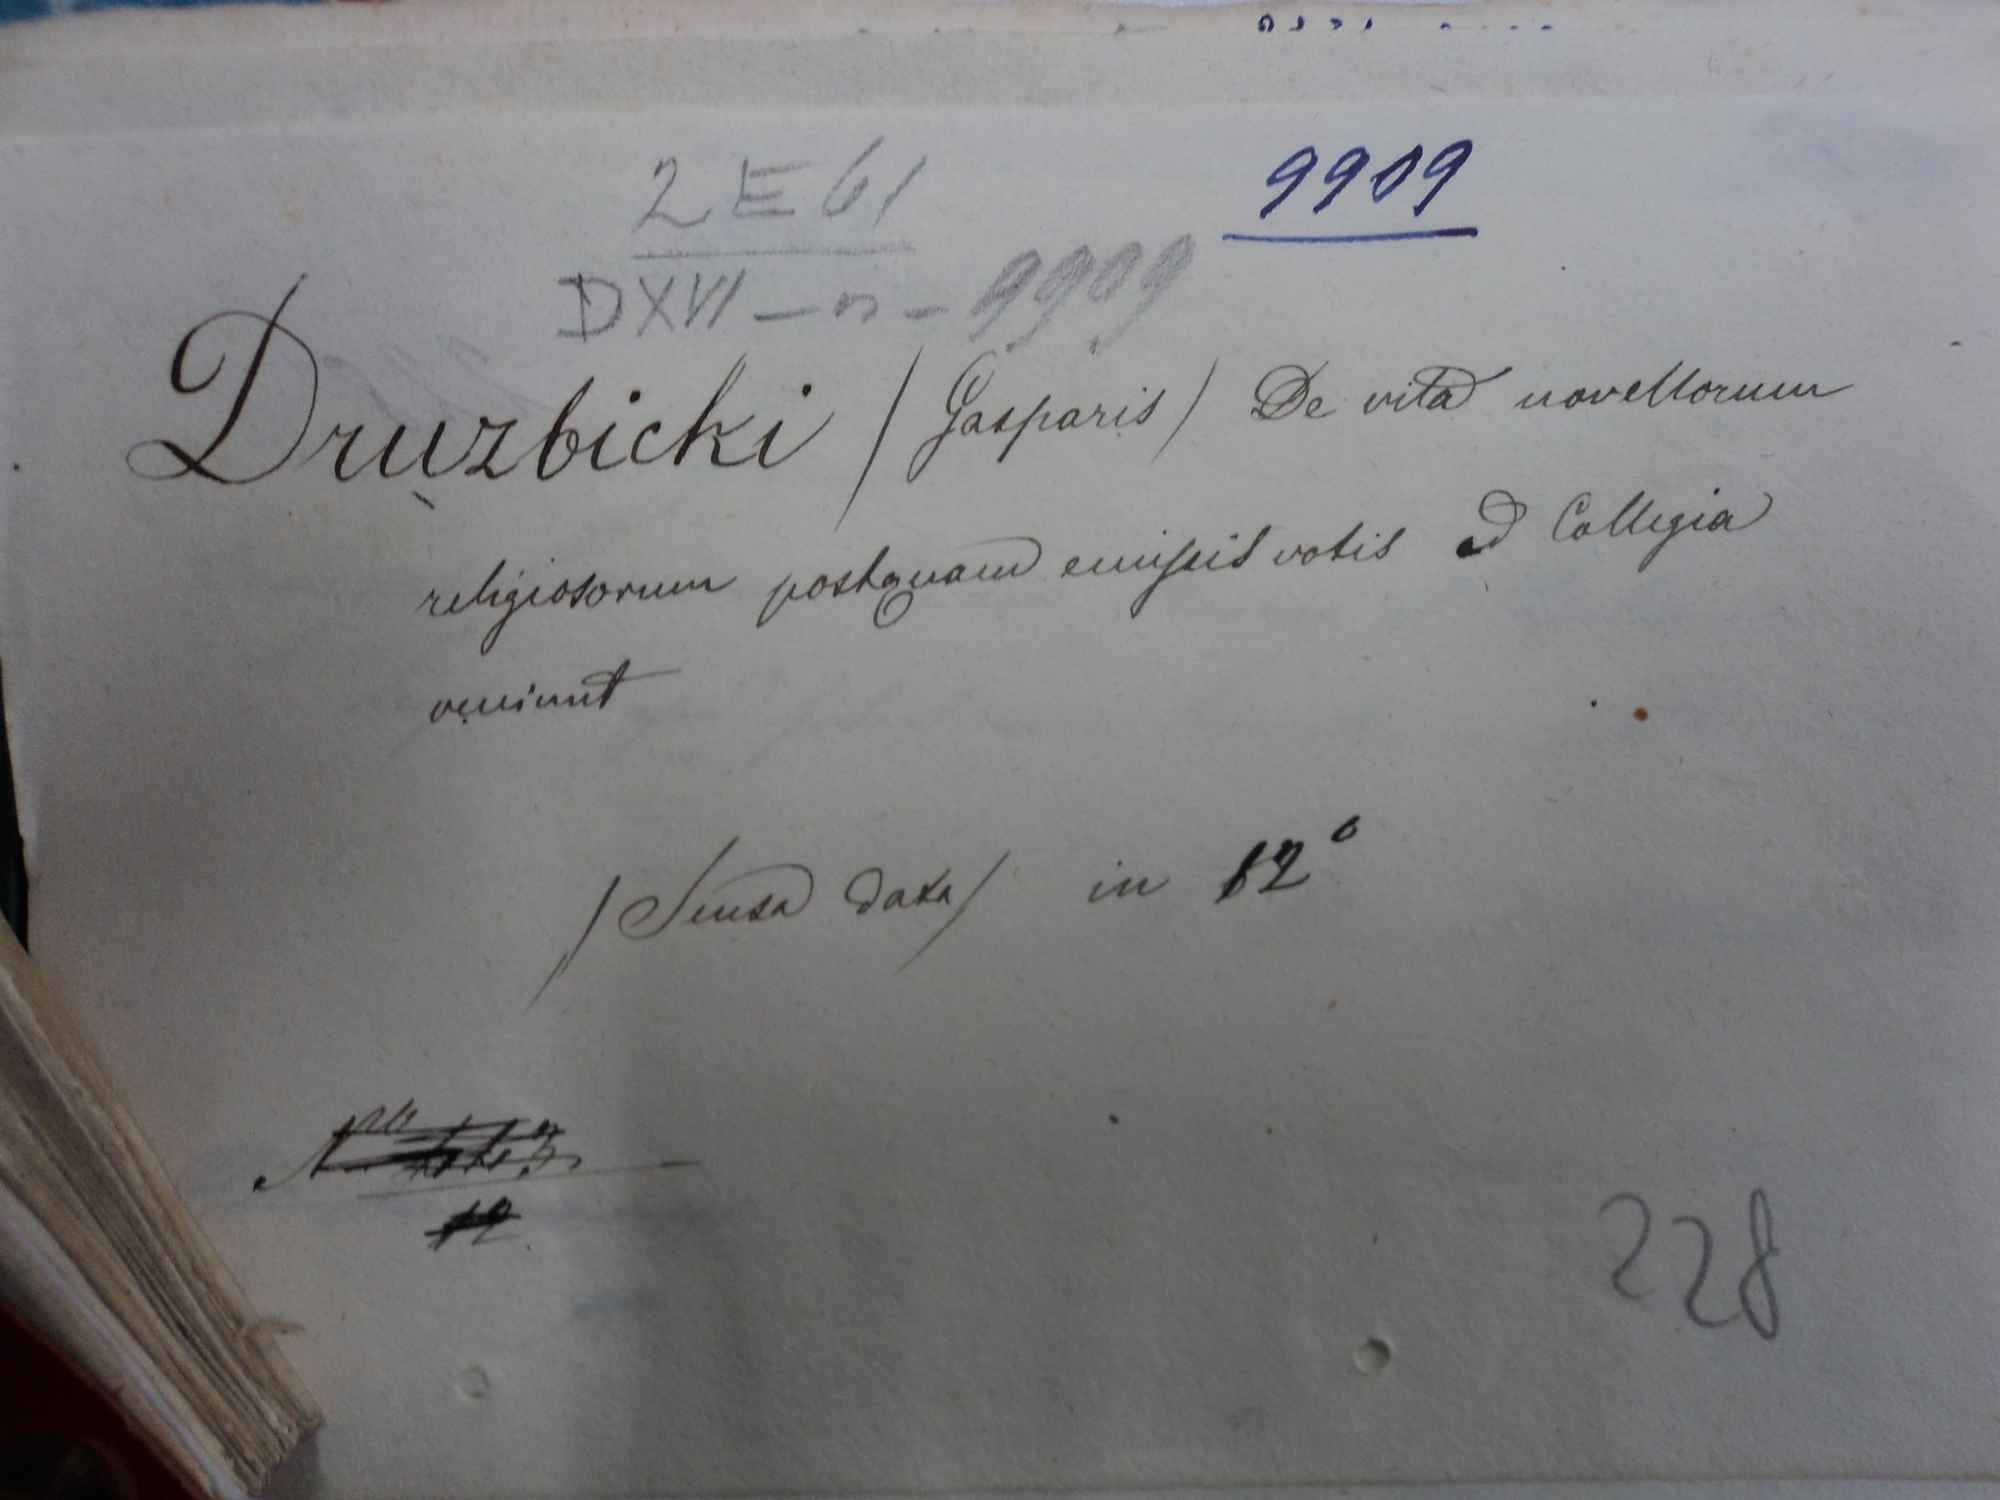 2 E 61
9909
DXVI - n - 9909
Druzbicki / Gasparis / De vita novellorum
religiosorum postquam emissis votis ad Collegia
veniunt
/ Sensa data / in 12º
12
228